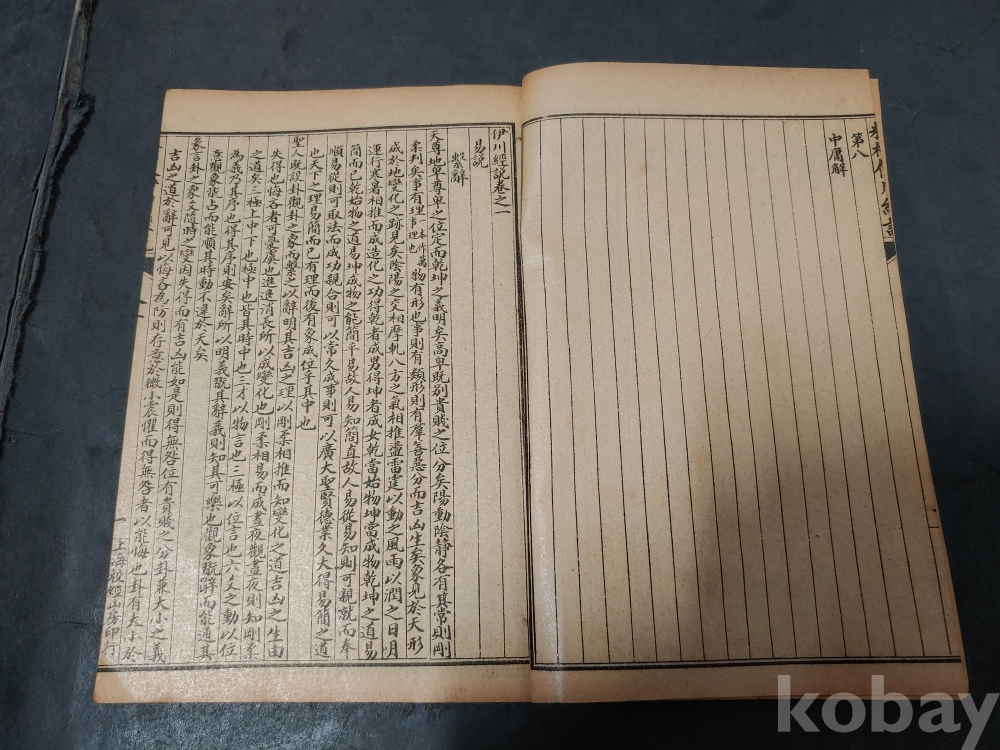 第八
中庸解
伊川經說卷之一
易說
繫辭
天尊地卑尊卑之位定而乾坤之義明矣高卑既別貴賤之位分矣陽動陰靜各有其常則剛
柔判矣事有理本作萬事理也物有形也事則有類形則有羣善惡分而吉凶生矣象見於天形
成於地變化之跡見矣陰陽之交相摩軋八方之氣相推盪雷霆以動之風雨以潤之日月
運行寒暑相推而成造化之功得乾者成男得坤者成女乾當始物坤當成物乾坤之道易
簡而已乾始物之道易坤成物之能簡平易故人易知簡直故人易從易知則可親就而奉
順易從則可取法而成功親合則可以常久成事則可以廣大聖賢德業久大得易簡之道
也天下之理易簡而已有理而後有象成位乎其中也
聖人既設卦觀卦之象而繫之以辭明其吉凶之理以剛柔相推而知變化之道吉凶之生由
失得也悔吝者可憂虞也進退消長所以成變化也剛柔相易而成晝夜觀晝夜則知剛柔
之道矣三極上中下也極中也皆其時中也三才以物言也三極以位言也六爻之動以位
為義乃其序也得其序則安矣辭所以明義玩其辭義則知其可樂也觀象玩辭而能通其
意觀變玩占而能順其時動不違於天矣
彖言卦之象爻隨時之變因失得而有吉凶能如是則得無咎位有貴賤之分卦兼大小之義
吉凶之道於辭可見以悔吝為防則存意於微小震懼而得無咎者以能悔也卦有大小於
一
上海校經山房印行
kobay